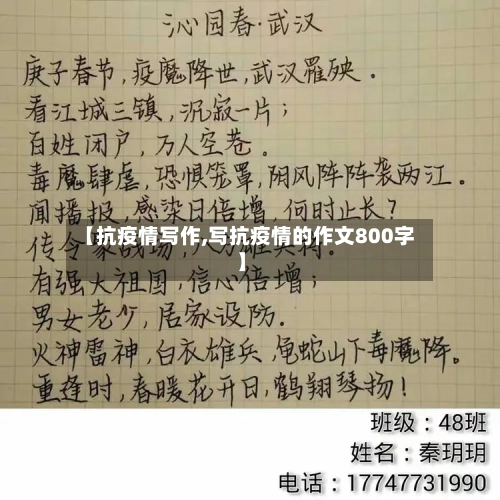 沁园春·武汉
庚子春节,疫魔降世,武汉罹殃.
看江城三镇,沉寂一片;
百姓闭户,万人空巷。
毒魔肆虐,恐惧笼罩,阴风阵阵袭两江.
闻播报,感染日倍增,何时止长?
【抗疫情写作,写抗疫情的作文800字
】
传令
有强大祖国,信心倍增;
男女老少,居家设防.
火神雷神,白衣雄兵,龟蛇山下毒魔降。
重逢时,春暖花开日,鹤翔琴扬!
班级:48班
姓名:秦玥玥
电话:17747731990